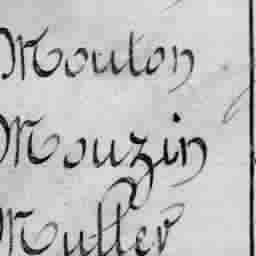 Mouton
Mouzin
Muller